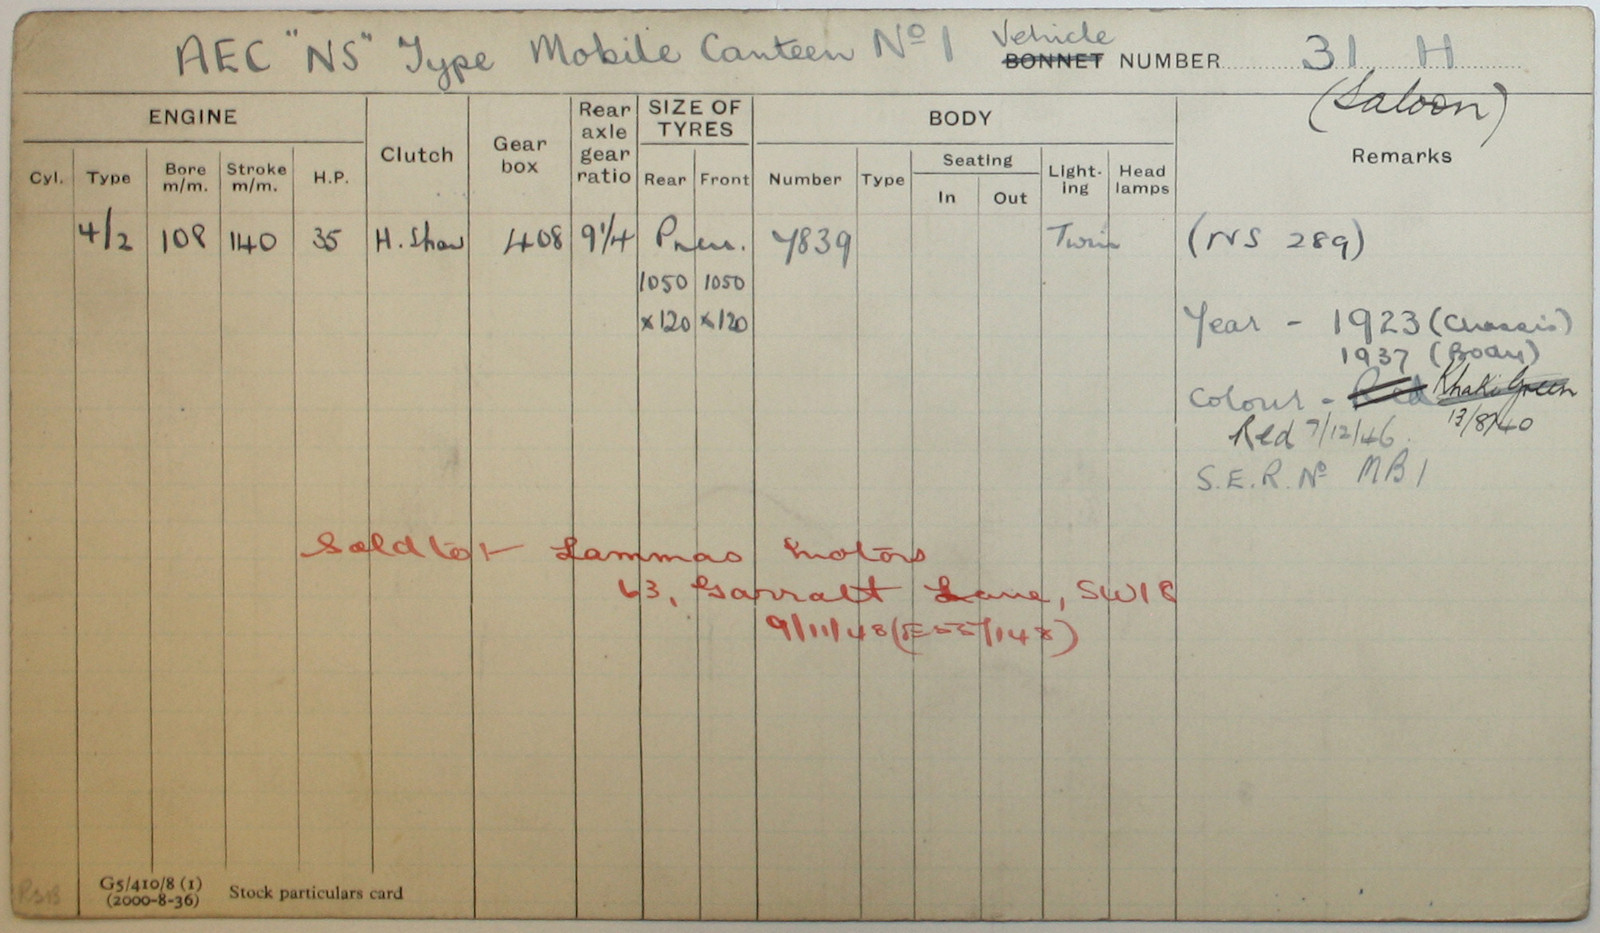 AEC "NS" Type Mobile Canteen No 1 Vehicle BONNET NUMBER 31 H
(Saloon)
ENGINE Clutch Gear box Rear axle gear ratio SIZE OF TYRES BODY Remarks
Cyl. Type Bore m/m. Stroke m/m. H.P. Rear Front Number Type Seating In Out Light-ing Head lamps
4/2 108 140 35 H. Shaw 408 9¼ Pneu. 7839 Twin (NS 289)
1050 1050
x120 x120
Year - 1923 (Chassis)
1937 (Body)
Colour - Red Khaki Green
13/8/40
Red 7/12/46.
S.E.R. No MB1
Sold to :- Lammas Motors
63, Garratt Lane, SW18
9/11/48 (E55/148)
G5/410/8 (1)
(2000-8-36) Stock particulars card